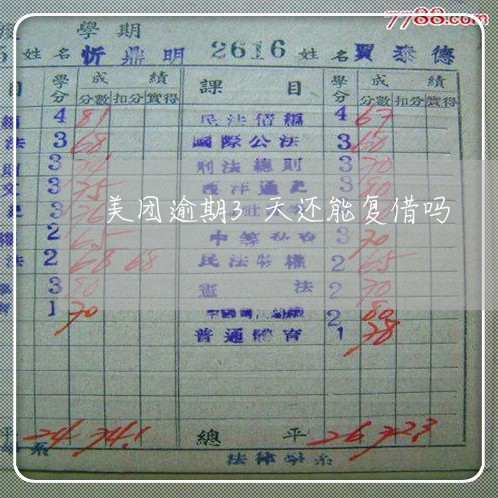 7788.com
學期
姓名 忻鼎明 2616 姓名 賈泰德
目 學分 成績 課目 學分 成績
分數 扣分 實得 分數 扣分 實得
4 81 民法債編 4 67
法 3 68 國際公法 3 60
3 刑法總則 3 70
3 75 西洋通史 3
美团逾期3 天还能复借吗
2 65 中等私 3 70
法 2 68 68 民法物權 2 65
3 憲法 2 70
1 70 2 80
普通體育 1 78
平 24 74.1 總平 26 72.3
系 法律學系